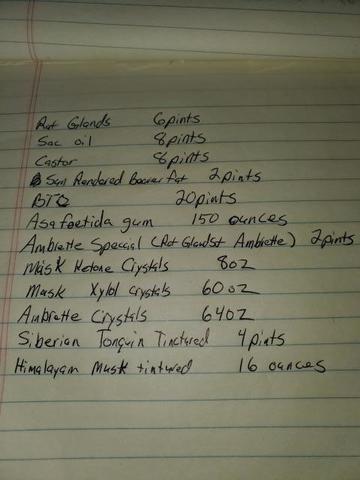 Rat Glands 6 pints
Sac oil 8 pints
Castor 8 pints
Sun Rendered Beaver fat 2 pints
BTQ 20 pints
Asafoetida gum 150 ounces
Ambrette Special (Rat Glands+ Ambrette) 2 pints
Musk Ketone Crystals 8oz
Musk Xylol crystals 60oz
Ambrette Crystals 64oz
Siberian Tonquin Tinctured 4 pints
Himalayam Musk tintured 16 ounces